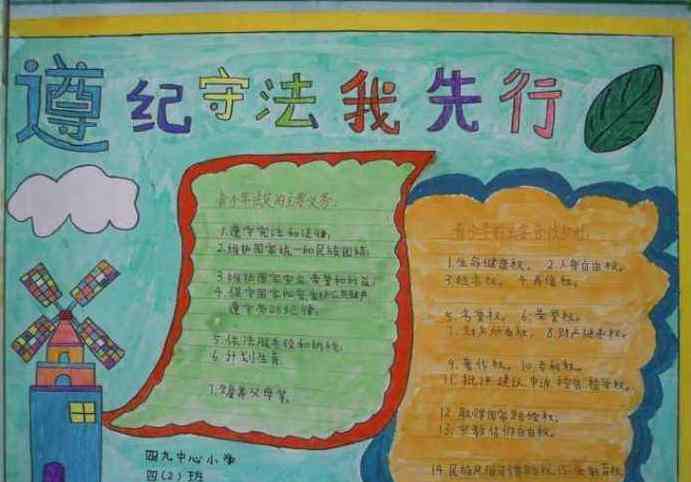 遵纪守法我先行
青少年法定的主要义务:
1.遵守宪法和法律;
2.维护国家统一和民族团结;
3.维护国家安全、荣誉和利益;
4.保守国家秘密,爱护公共财产
遵守劳动纪律;
5.依法服兵役和纳税;
6.计划生育
7.赡养父母等。
青少年的主要合法权利:
1.生命健康权。 2.人身自由权。
3.姓名权。 4.肖像权。
5.名誉权。 6.荣誉权。
7.财产所有权。 8.财产继承权。
9.著作权。 10.专利权。
11.批评、建议、申诉、控告、检举权。
12.取得国家赔偿权。
13.宗教信仰自由权。
14.民族风俗习惯
四九中心小学
四(2)班